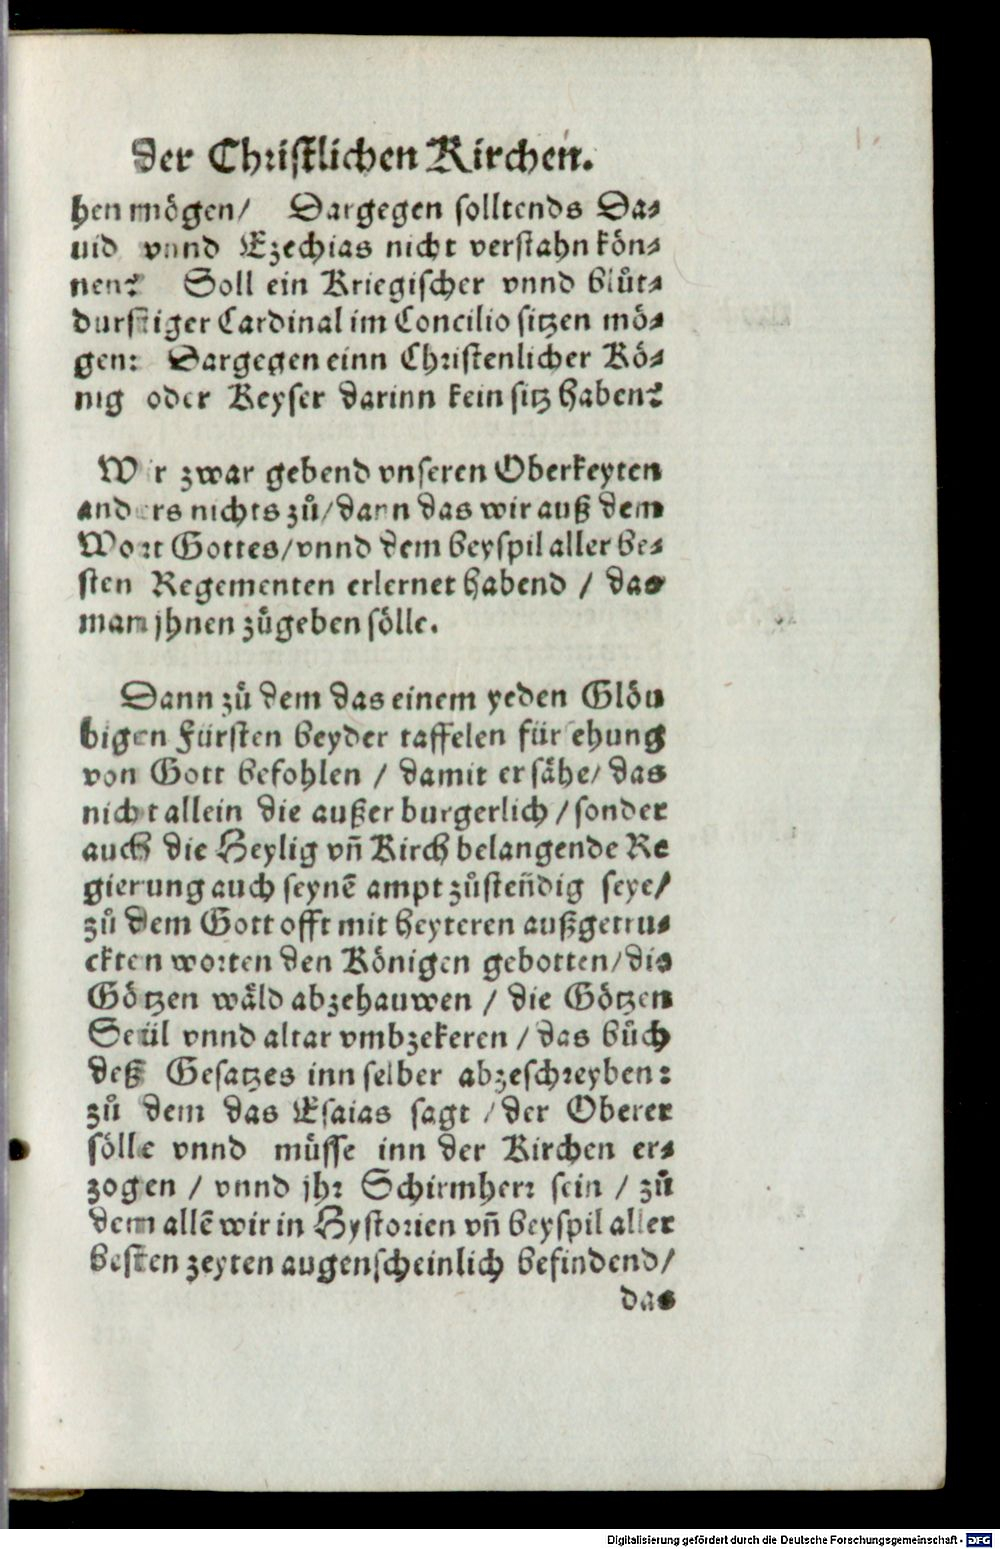 der Christlichen Kirchen.
hen mögen/ Dargegen solltends Da⸗
uid vnnd Ezechias nicht verstahn kön⸗
nen? Soll ein Kriegischer vnnd blůt⸗
durstiger Cardinal im Concilio sitzen mö⸗
gen: Dargegen einn Christenlicher Kö⸗
nig oder Keyser darinn kein sitz haben?
Wir zwar gebend vnseren Oberkeyten
anders nichts zů/dann das wir auß dem
Wort Gottes/vnnd dem beyspil aller be⸗
sten Regementen erlernet habend / das
man jhnen zůgeben sölle.
Dann zů dem das einem yeden Glöu
bigen Fürsten beyder taffelen fürsehung
von Gott befohlen / damit er sähe/ das
nicht allein die außer burgerlich/sonder
auch die Heylig vñ Kirch belangende Re
gierung auch seynē ampt zůsteñdig seye/
zů dem Gott offt mit heyteren außgetru⸗
ckten worten den Königen gebotten/die
Götzen wäld abzehauwen / die Götzen
Seül vnnd altar vmbzekeren / das bůch
deß Gesatzes inn selber abzeschreyben:
zů dem das Esaias sagt /der Oberer
sölle vnnd müsse inn der Kirchen er⸗
zogen / vnnd jhr Schirmherr sein / zů
dem allē wir in Hystorien vñ beyspil aller
besten zeyten augenscheinlich befindend/
das
Digitalisierung gefördert durch die Deutsche Forschungsgemeinschaft - DFG